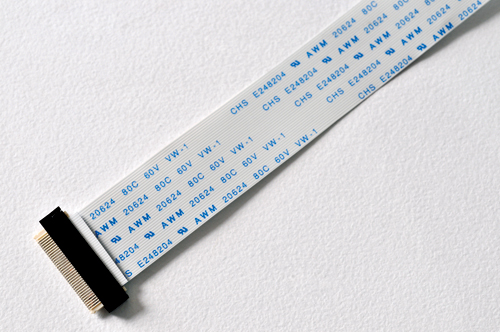 20624 80C 60V VW-1 CHS E248204 AWM 20624 80C
AWM 20624 80C 60V VW-1 CHS E248204 AWM 20624 80C
AWM 20624 80C 60V VW-1 CHS E248204 AWM 20624 80C
48204 AWM 20624 80C 60V VW-1 CHS E248204 AWM 20624 80C
S E248204 AWM 20624 80C 60V VW-1 CHS E248204 AWM 20624